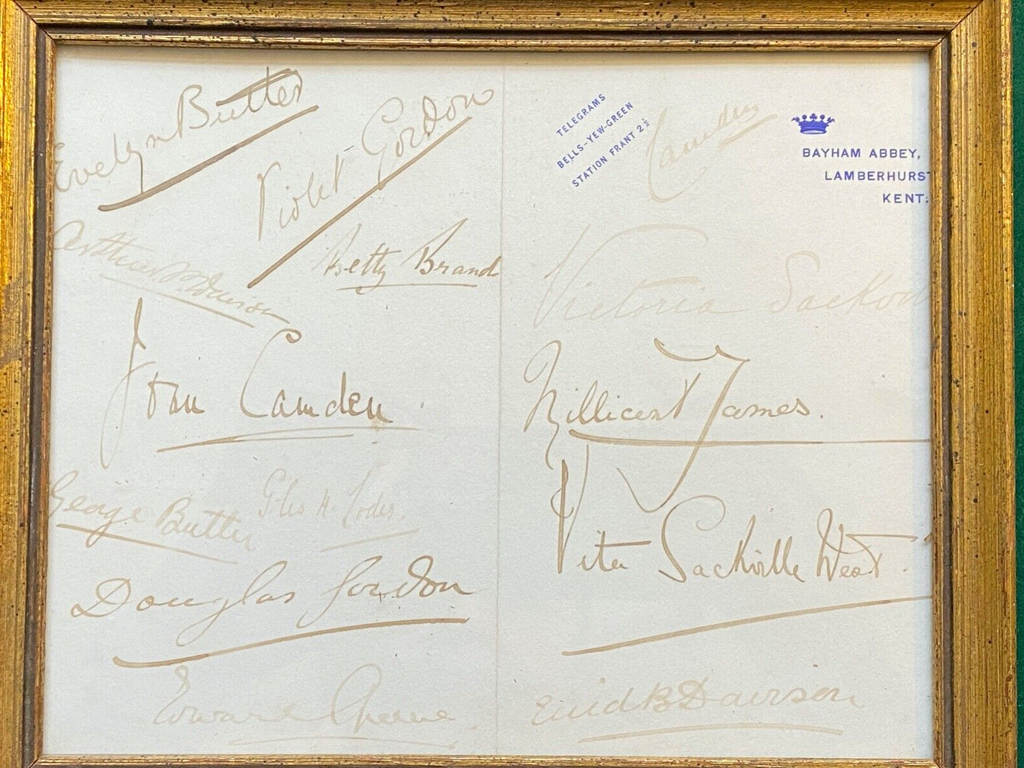 Evelyn Butter
Violet Gordon
Betty Brand
Joan Camden
George Butter
Giles H.
Douglas Gordon
Edward
TELEGRAMS
BELLS-YEW-GREEN
STATION FRANT 2½
Camden
BAYHAM ABBEY,
LAMBERHURST
KENT.
Victoria Sackv
Millicent James.
Vita Sackville West.
Enid B Davison